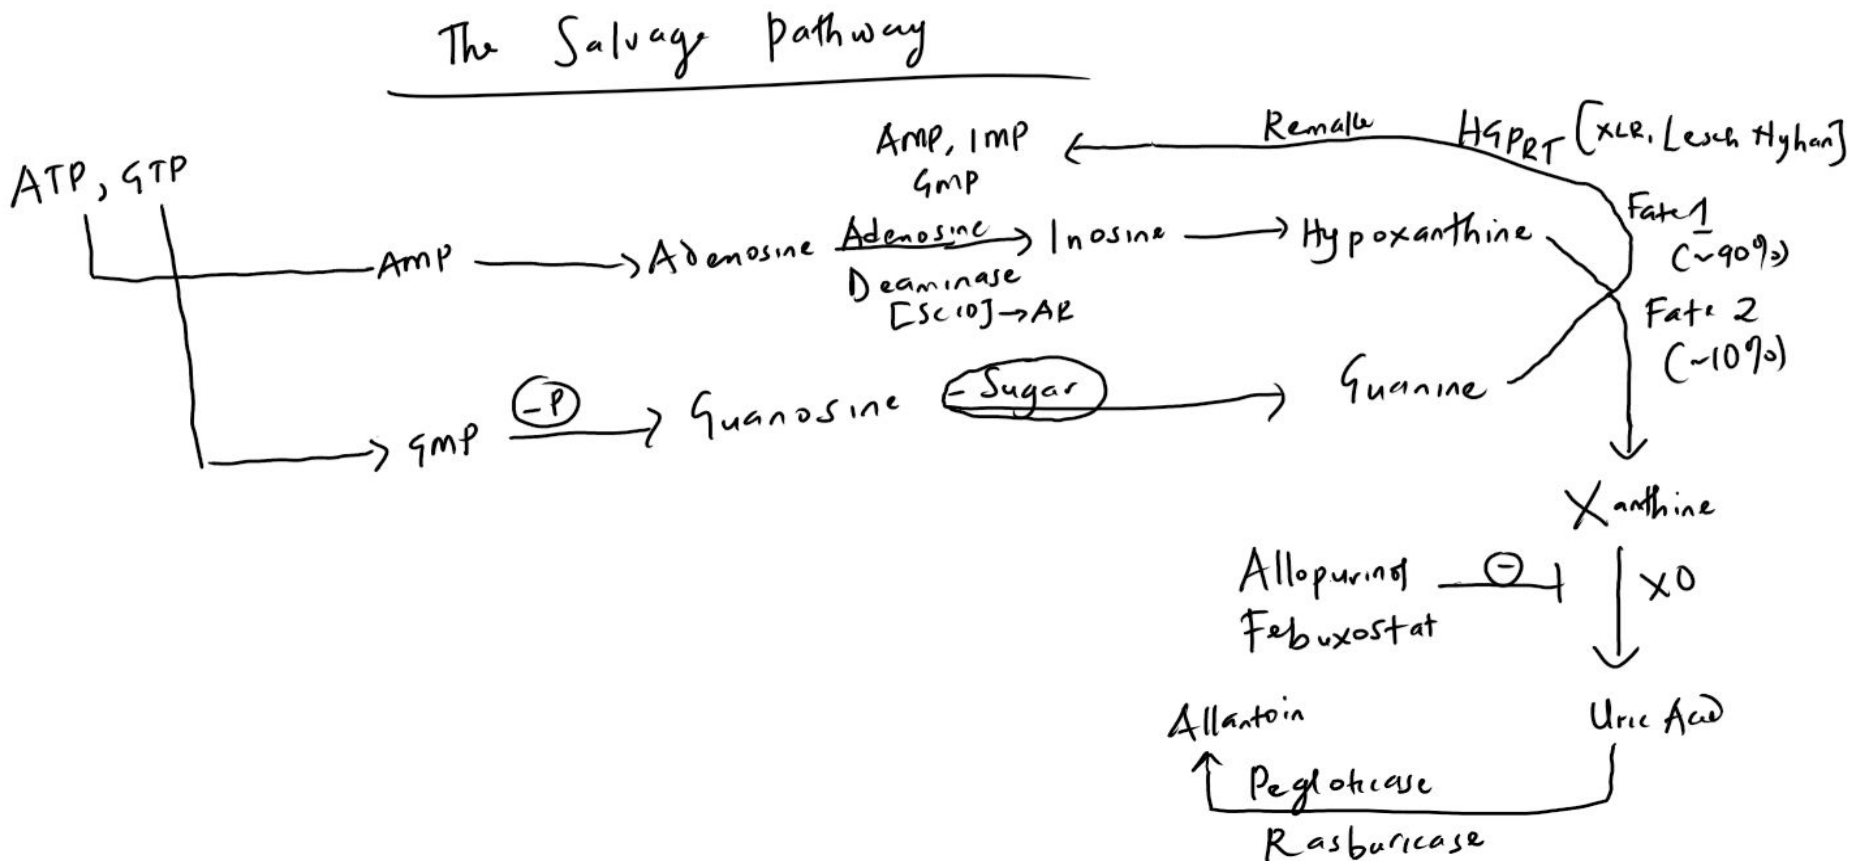 The Salvage Pathway
AMP, IMP
GMP
Remake
HGPRT [XLR, Lesch Nyhan]
ATP, GTP
Fate 1
(~90%)
AMP
Adenosine
Adenosine
Deaminase
[SCID] → AR
Inosine
Hypoxanthine
Fate 2
(~10%)
GMP
-P
Guanosine
- Sugar
Guanine
Xanthine
Allopurinol
Febuxostat
-
XO
Uric Acid
Allantoin
Pegloticase
Rasburicase